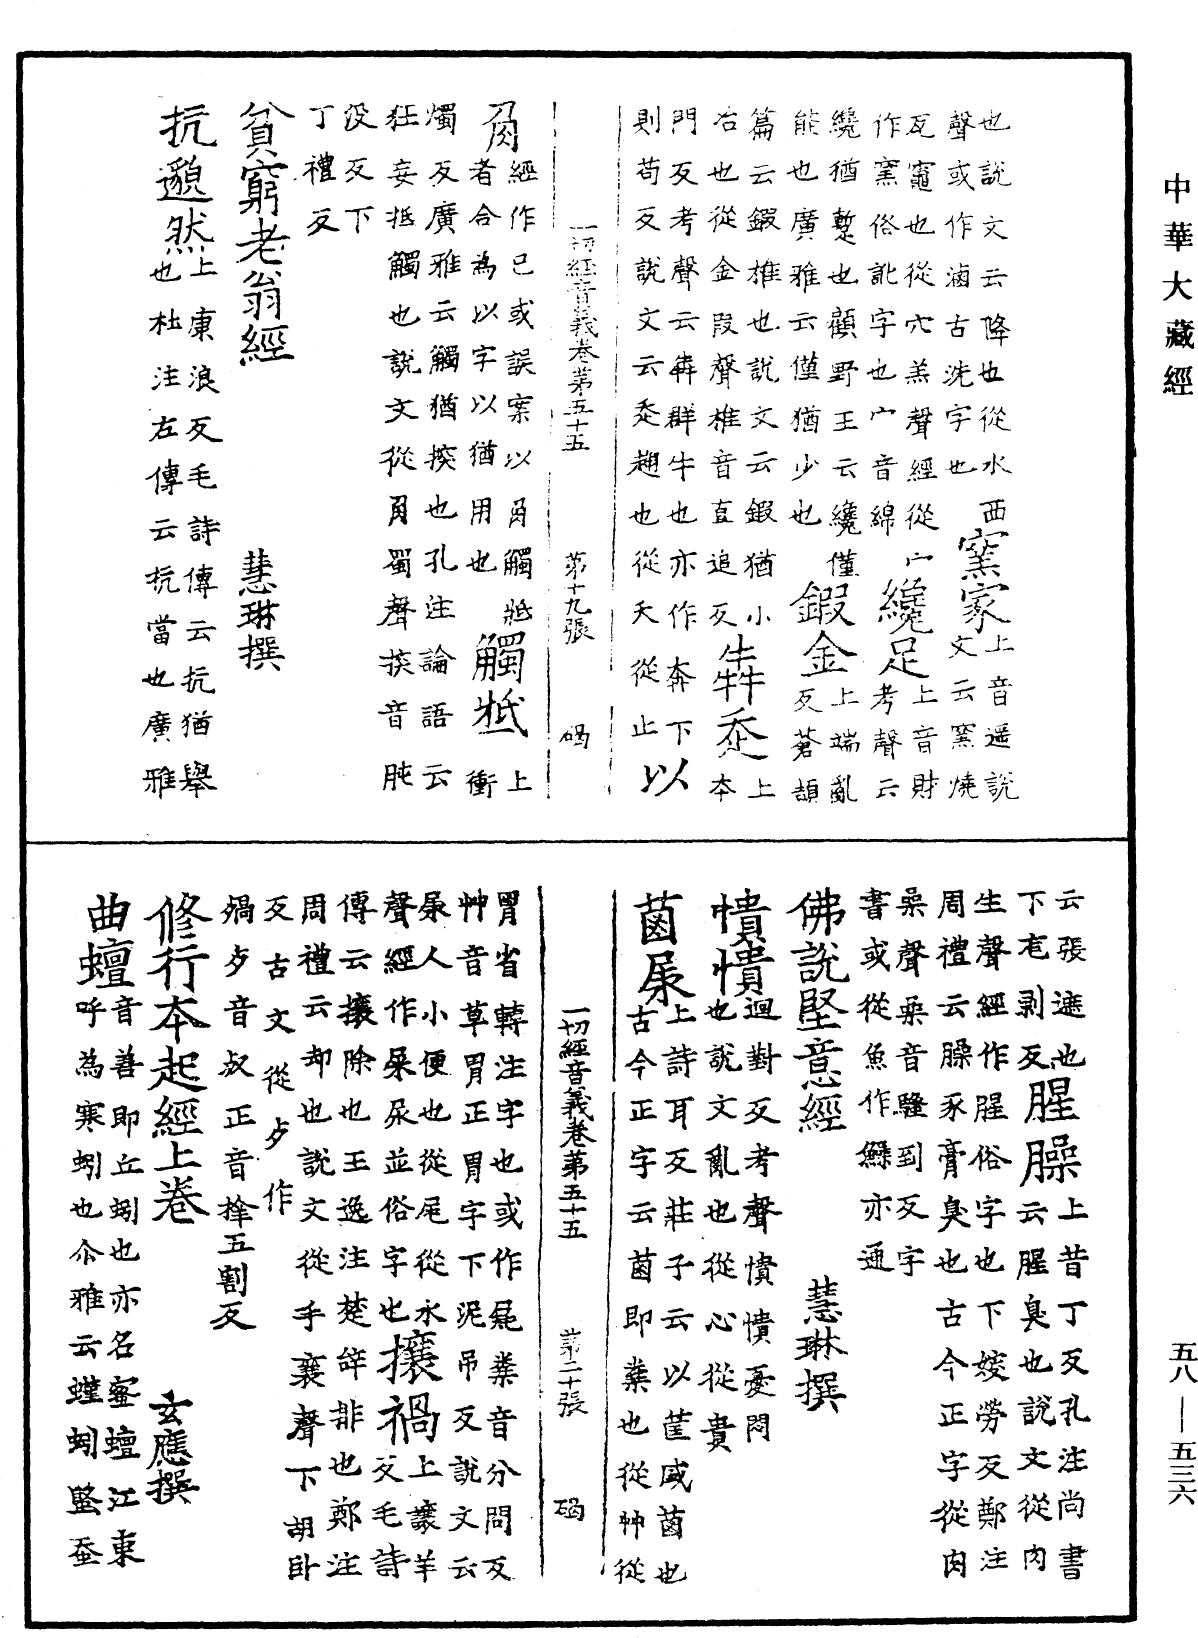 中華大藏經
也說文云條也從水西
聲或作滷古洗字也
窯家
上音遥說
文云窯燒
瓦竈也從穴羔聲經從宀
作窯俗訛字也宀音綿
纔足
上音財
考聲云
纔猶蹔也顧野王云纔僅
能也廣雅云僅猶少也
鍛金
上端亂
反蒼頡
篇云鍛椎也說文云鍛猶小
冶也從金段聲椎音直追反
犇走
上本
門反考聲云犇群牛也亦作奔下
則苟反說文云走趨也從夭從止
以
角
經作已或誤案以角觸牴
者合為以字以猶用也
觸牴
上衝
燭反廣雅云觸猶揬也孔注論語云
狂妄抵觸也說文從角蜀聲揬音肫
沒反下
丁禮反
貧窮老翁經
慧琳撰
抗邈然
上康浪反毛詩傳云抗猶舉
也杜注左傳云抗當也廣雅
一切經音義卷第五十五 第十九張 碣
云張遮也
下尨剥反
腥臊
上昔丁反孔注尚書
云腥臭也說文從肉
生聲經作腥俗字也下㛐勞反鄭注
周禮云臊豕膏臭也古今正字從肉
喿聲喿音騷到反字
書或從魚作鱢亦通
佛說堅意經
慧琳撰
憒憒
迴對反考聲憒憒憂悶
也說文亂也從心從貴
菌屎
上詩耳反莊子云以筐盛菌也
古今正字云菌即糞也從艸從
胃省轉注字也或作屎糞音分問反
艸音草胃正胃字下泥吊反說文云
尿人小便也從尾從水
聲經作屎尿並俗字也
攘禍
上讓羊
反毛詩
傳云攘除也王逸注楚辭排也鄭注
周禮云却也說文從手襄聲下胡卧
反古文從歺作
殃歺音叔正音擇五割反
修行本起經上卷
玄應撰
曲蟺
音善即丘蚓也亦名蜜蟺江東
呼為寒蚓也尒雅云螼蚓豎蚕
一切經音義卷第五十五 第二十張 碣
五八—五三六